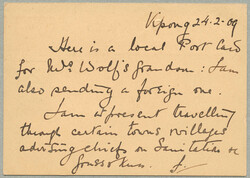 Kpong 24-2-09
Here is a local Post Card
for Mr Wolf's Grandson : I am
also sending a foreign one.
I am at present travelling
through certain towns & villages
advising chiefs on Sanitation